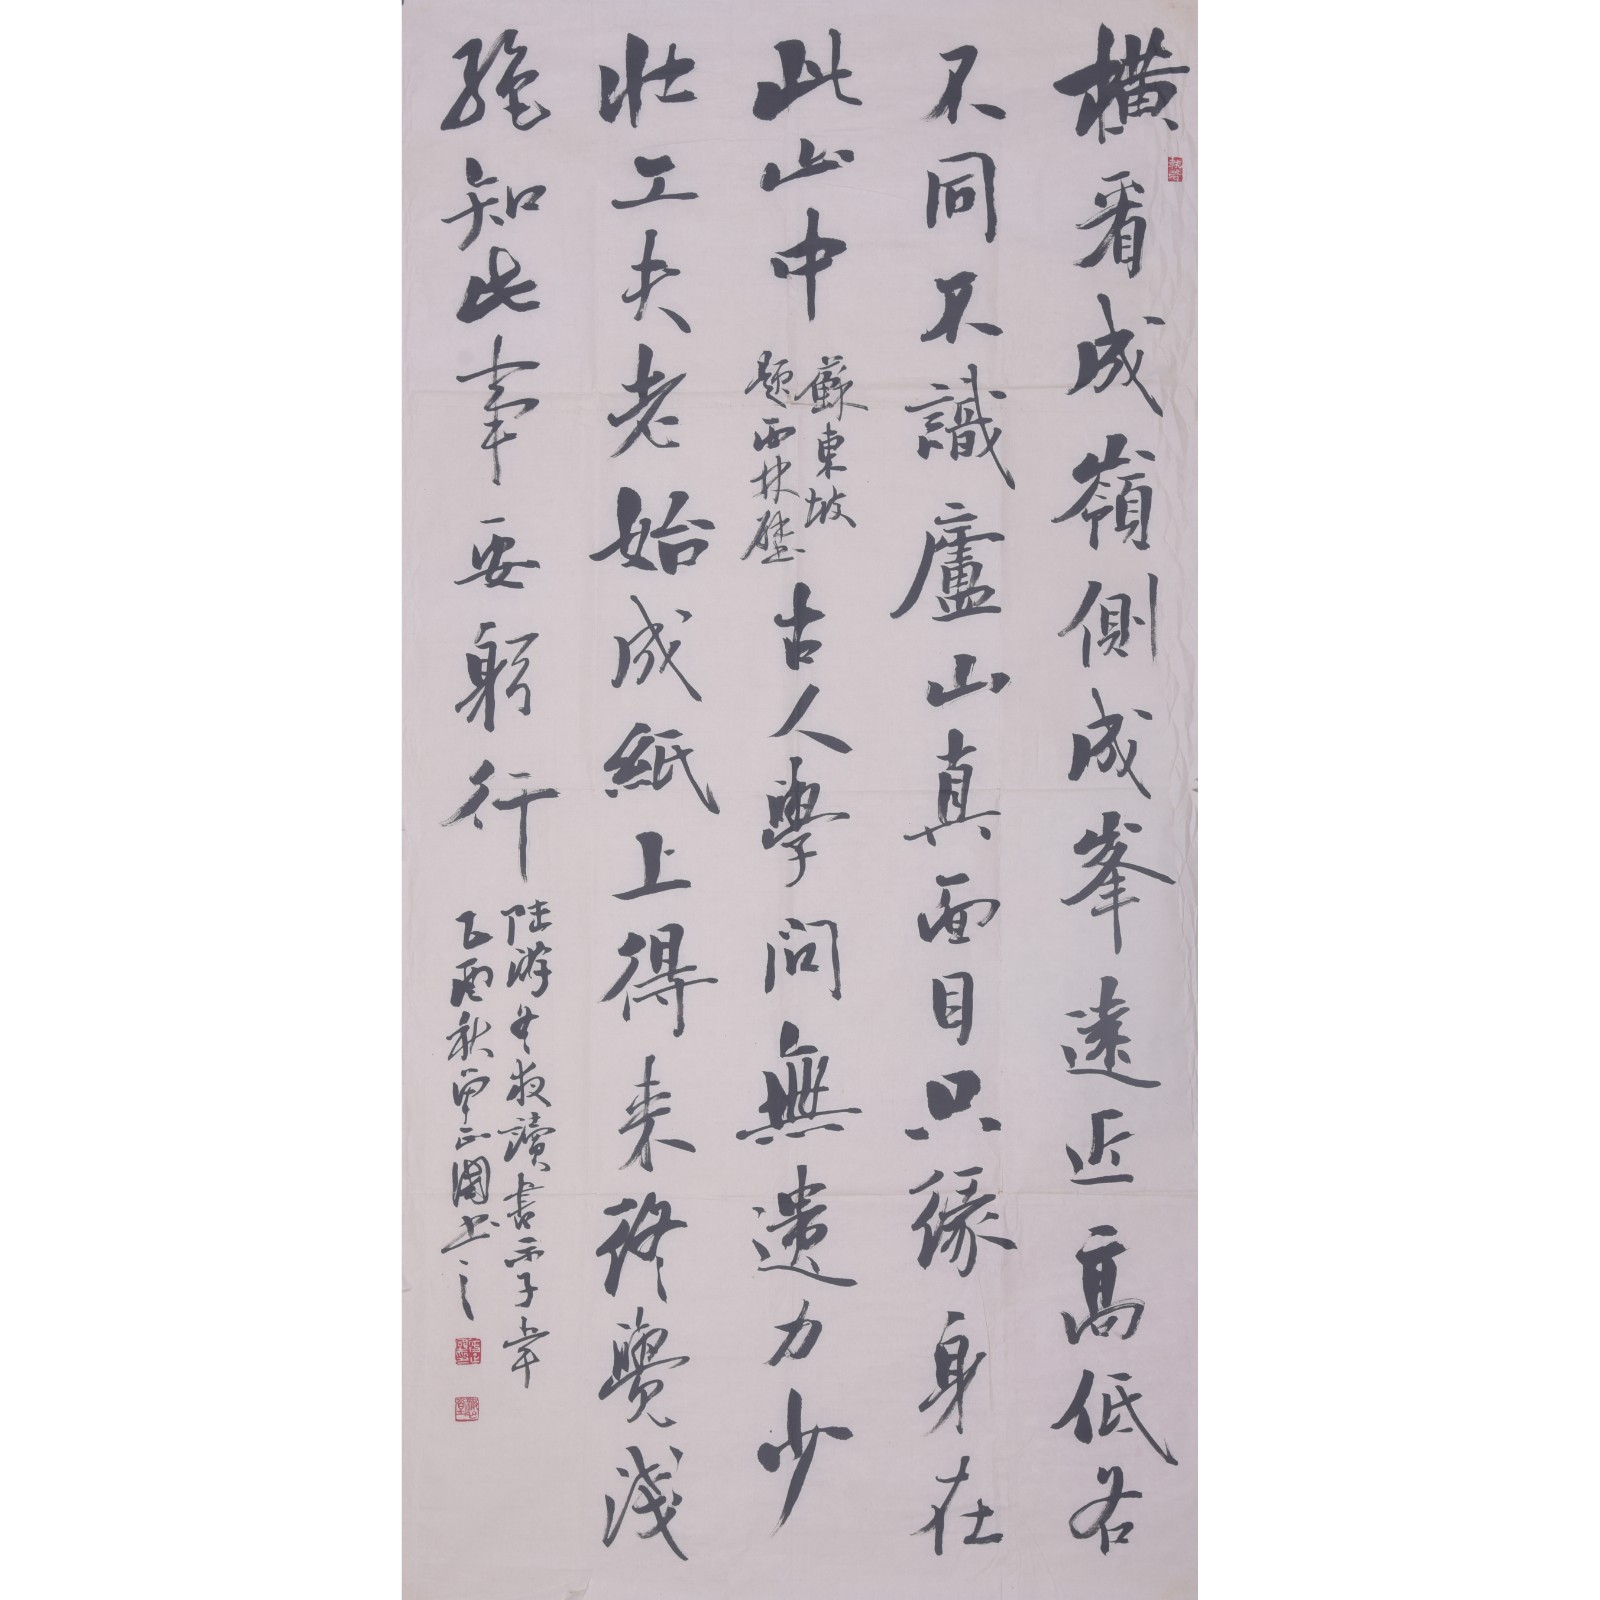 橫看成嶺側成峯遠近高低各
不同不識廬山真面目只緣身在
此山中
蘇東坡
題西林壁
古人學問無遺力少
壯工夫老始成紙上得来終覺淺
絕知此事要躬行
陆游冬夜讀書示子聿
乙酉秋覃正國书之